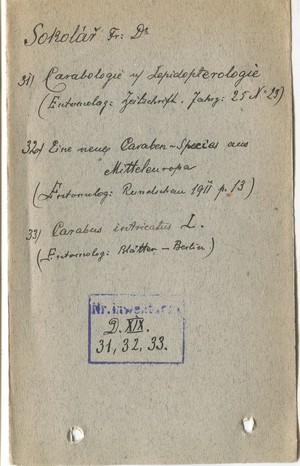 Sokolář Fr: Dr
31) Carabologie u Lepidopterologie
(Entomolog: Zeitschrift. Jahrg: 25 No 23)
32) Eine neue Caraben-Species aus
Mitteleuropa
(Entomolog: Rundschau 1911 p. 13)
33) Carabus intricatus L.
(Entomolog: Blätter - Berlin)
Nr. inwent
D. XIX.
31, 32, 33.